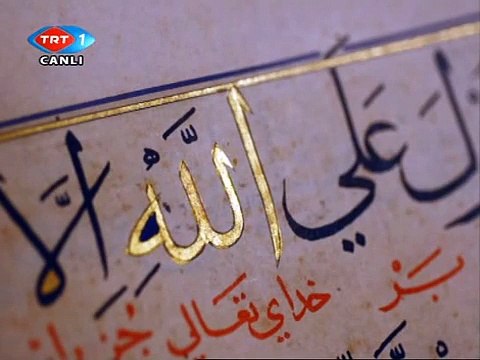 TRT 1
CANLI
عَلَي اللّٰهِ الَّا
بَرْ خداي تَعالي جُز